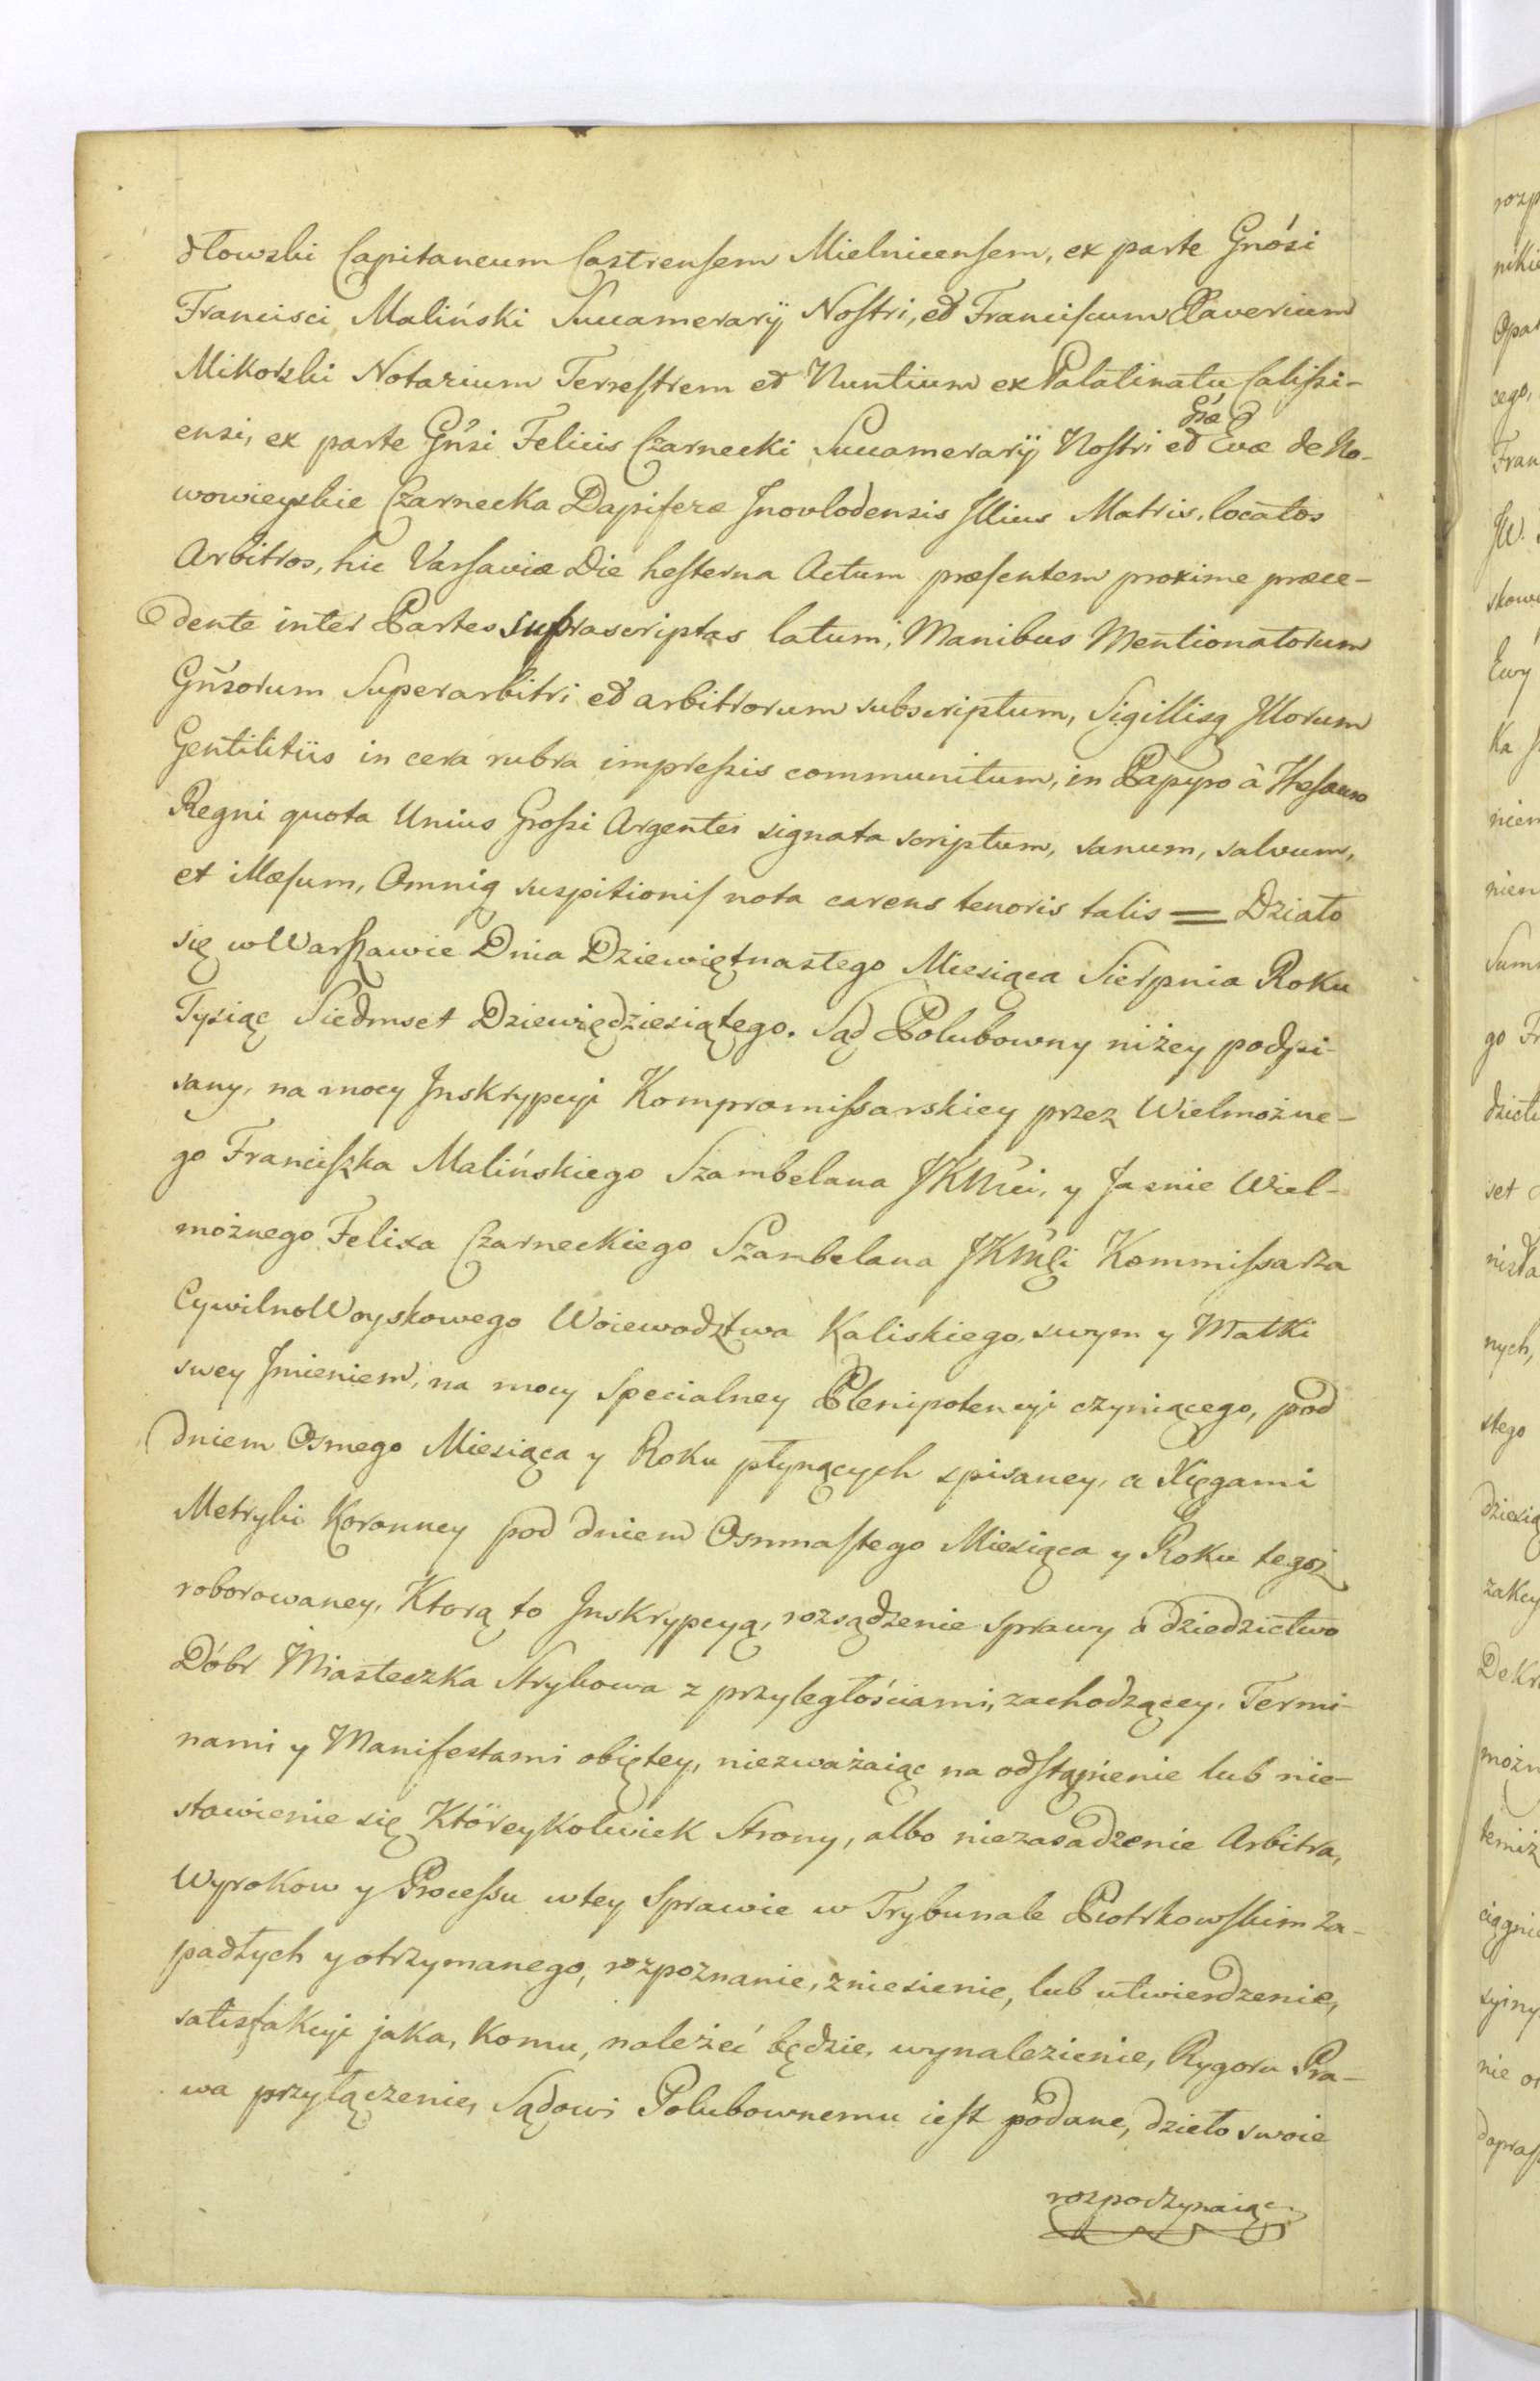 dłowski Capitaneum Castrensem Mielnicensem, ex parte Gnósi
Francisci Maliński Succamerarÿ Nostri, et Franciscum Xaverium
Mikorski Notarium Terrestrem et Nuntium ex Palatinatu Calissi-
Gsæ
ensi, ex parte Gnsi Felicis Czarnecki Succamerarÿ Nostri et Evæ de No-
wowieyskie Czarnecka Dapiferæ Jnovlodensis Jllius Matris, locatos
Arbitros, hic Varsaviæ Die hesterna Actum præsentem proxime præce-
dente inter Partes suprascriptas latum, Manibus Mentionatorum
Gñsorum Superarbitri et arbitrorum subscriptum, Sigillisq Jllorum
Gentilitiis in cera rubra impressis communitum, in Papyro à Thesauro
Regni quota Unius Grossi Argentei signata scriptum, sanum, salvum,
et illæsum, Omniq suspitionis nota carens tenoris talis = Działo
się w Warszawie Dnia Dziewiętnastego Miesiąca Sierpnia Roku
Tysiąc Siedmset Dziewiędziesiątego. Sąd Polubowny niżey podpi-
sany, na mocy Jnskrypcyi Kompromissarskiey przez Wielmożne-
go Franciszka Malińskiego Szambelana JKMci, y Jasnie Wiel-
możnego Felixa Czarneckiego Szambelana JKMci Kommissarza
CywilnoWoyskowego Woiewodztwa Kaliskiego, swym y Matki
swey Jmieniem, na mocy specialney Plenipotencyi czyniącego, pod
dniem Osmego Miesiąca y Roku płynących spisaney, a Xięgami
Metryki Koronney pod dniem Osmnastego Miesiąca y Roku tegoż
roborowaney, Ktorą to Jnskrypcyą, rozsądzenie sprawy o dziedzictwo
Dóbr Miasteczka Strykowa z przyległościami, zachodzącey, Termi-
nami y Manifestami obiętey, niezważaiąc na odstąpienie lub nie-
stawienie się Którey kolwiek Strony, albo niezasadzenie Arbitra,
Wyrokow y Processu w tey Sprawie w Trybunale Piotrkowskim za-
padłych y otrzymanego, rozpoznanie, zniesienie, lub utwierdzenie,
satisfakcyi jaka, Komu, należeć będzie, wynalezienie, Rygoru Pra-
wa przyłączenie, Sądowi Polubownemu iest podane, dzieło swoie
rozpoczynaiąc